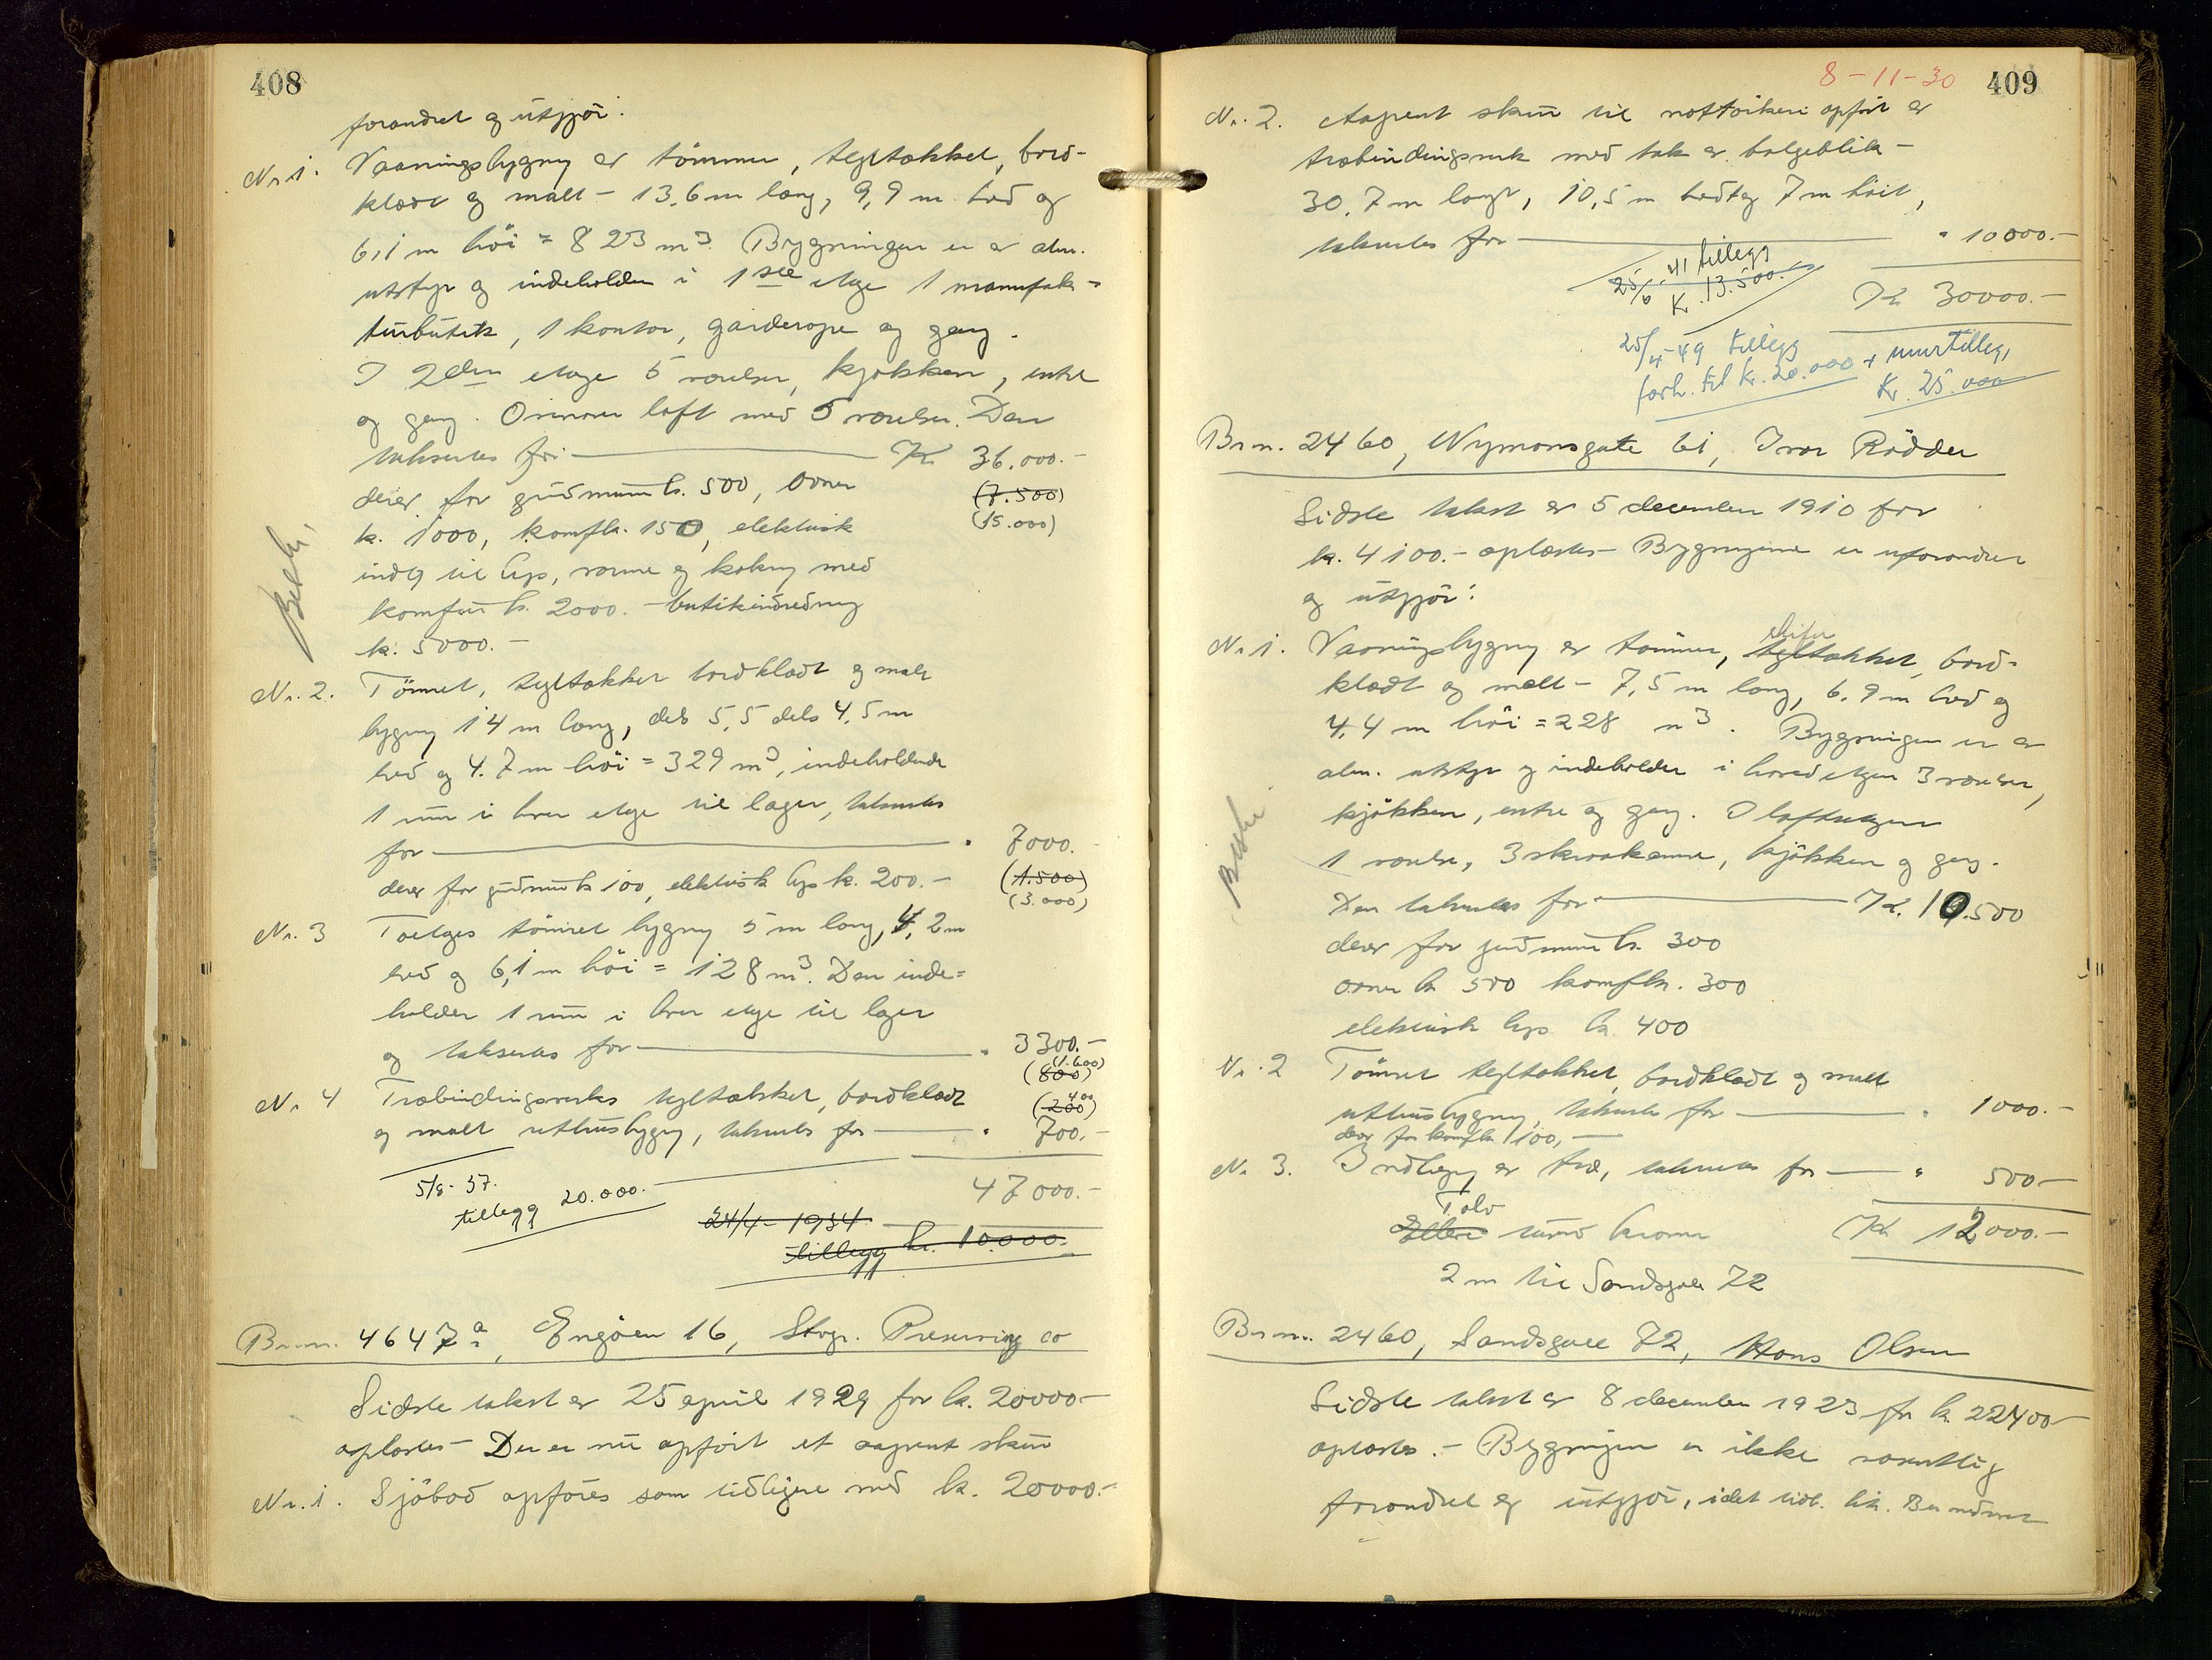 408
forandret og utgjør:
Nr. 1. Vaaningsbygng av tømmer, tegltækket, bord-
klædt og malt - 13,6 m lang, 9,9 m bred og
6,1 m høi = 823 m3. Bygningen er av alm.
utstyr og indeholder i 1ste etage 1 manufak-
turbutik, 1 kontor, garderope og gang.
I 2den etage 5 værelser, kjøkken, entre
og gang. Ovenover loft med 5 værelser. Den
takseres for Kr. 36.000.-
derav for grundmur kr. 500, ovner (7.500)
kr. 1000, komfkr. 150, elektrisk (15.000)
indlg til lys, varme og kokng med
komfur kr. 2000. - butikindredning
kr. 5000.-
Nr. 2. Tømret, tegltækket bordklædt og malt
bygng 14 m lang, dels 5,5 dels 4,5 m
bred og 4.7 m høi = 329 m3, indeholdende
1 rum i hver etage til lager, takseres
for " 7000.-
derav for grundmur kr 100, elektrisk lys kr. 200.- (1.500)
(3.000)
Nr. 3 Toetages tømret bygng 5 m lang, 4,2 m
bred og 6,1 m høi = 128 m3. Den inde-
holder 1 rum i hver etage til lager
og takseres for " 3300.-
(1.600)
(800)
Nr. 4 Træbindingsverks tegltækket, bordklædt (200) 400
og malt uthusbygng, takseres for " 700.-
47000.-
5/8-37.
tillegg 20.000.-
24/4-1934
tillegg kr. 10000.-
Brnr. 4647a, Engøen 16, Stvgr. Preserving co
Sidste takst av 25 april 1929 for kr. 20000.-
oplæstes - Der er nu opført et aapent skur
Nr. 1. Sjøbod opføres som tidligere med kr. 20000.-
8-11-30 409
Nr. 2. Aapent skur til nottørkeri opført av
træbindingsverk med tak av bølgeblik -
30.7 m langt, 10,5 m bredt og 7 m høit,
takseres for " 10000.-
25/6-41 tillegg
Kr. 13.500.-
Kr 30000.-
25/4-49 tillegg
forh. til kr. 20.000 + murtillegg
Kr. 25.000
Brn. 2460, Nymansgate 61, Ivar Rødder
Sidste takst av 5 december 1910 for
kr. 4100.- oplæstes - Bygningene er uforandret
og utgjør:
skifer
Nr. 1. Vaaningsbygng av tømmer, tegltækket, bord-
klædt og malt - 7,5 m lang, 6.9 m bred og
4,4 m høi = 228 m3. Bygningen er av
alm. utstyr og indeholder i hovedetagen 3 værelser,
kjøkken, entre og gang. I loftsetagen
1 værelse, 3 skraakamre, kjøkken og gang.
Den takseres for Kr. 10.500
derav for grundmur kr. 300
ovner kr 500 komfkr. 300
elektrisk lys kr. 400
Nr. 2 Tømret tegltækket, bordklædt og malt
uthusbygng, takseres for " 1000.-
derav for komfkr 100,-
Nr. 3. Indhegng av træ, takseres for " 500.-
Tolv
Elleve tusind kroner Kr 12000.-
2 m til Sandsgate 72
Brnr. 2460, Sandsgate 72, Hans Olsen
Sidste takst av 8 december 1923 for kr 22400-
oplæstes. - Bygningen er ikke væsentlig
forandret og utgjør, idet tidl.